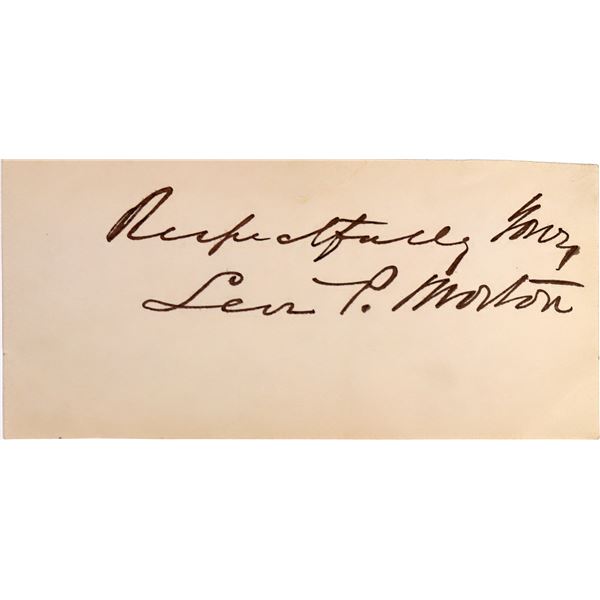 Respectfully Yours,
Levi P. Morton